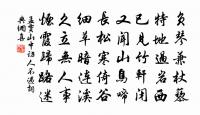 負琴兼杖藜
特地過岩西
已見竹軒閉
又聞山鳥啼
長松寒倚谷
細草暗連溪
久立無人事
煙霞歸路迷
孟貫山中訪人不遇